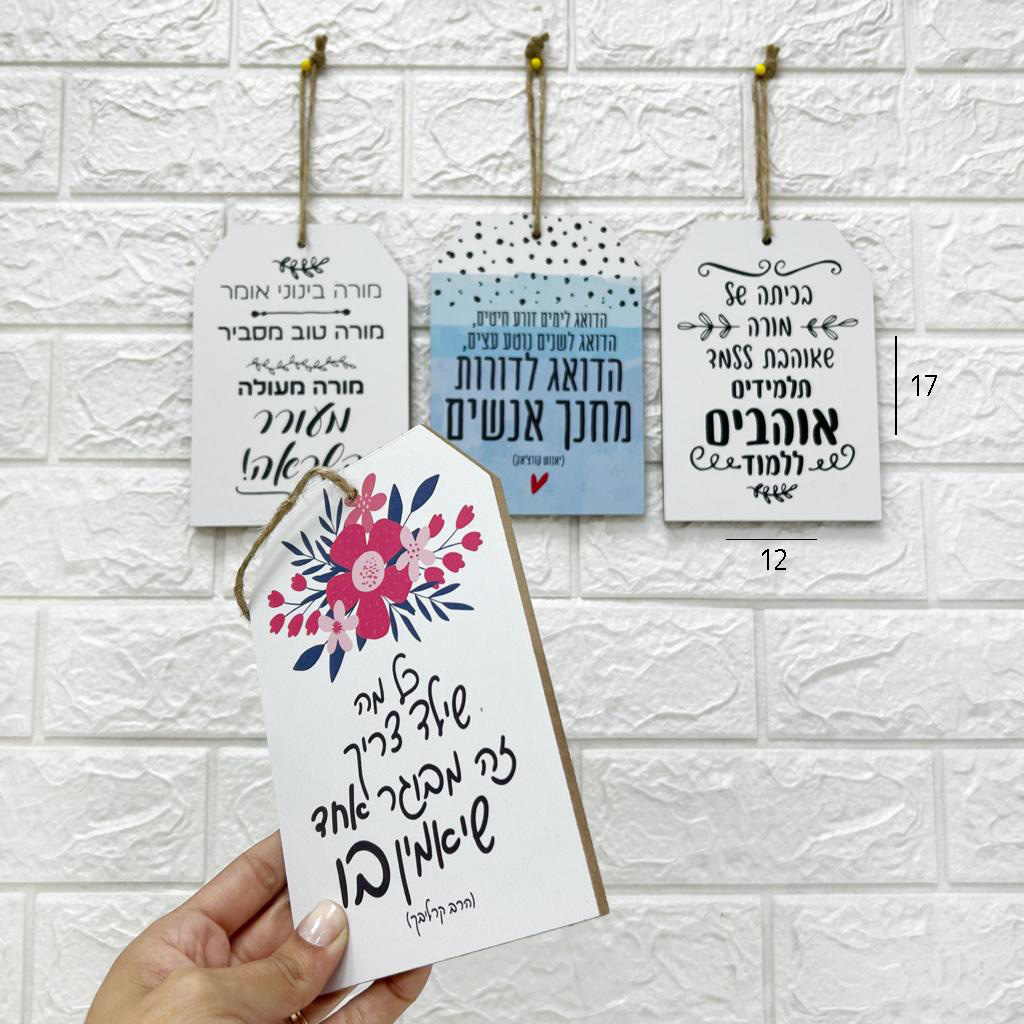 מורה בינוני אומר
מורה טוב מסביר
מורה מעולה
מעורר
הדואג לימים זורע חיטים,
הדואג לשנים נוטע עצים,
הדואג לדורות
מחנך אנשים
(יאנוש קורצ'אק)
בכיתה של
מורה
שאוהבת ללמד
תלמידים
אוהבים
ללמוד
17
12
כל מה
שילד צריך
זה מבוגר אחד
שיאמין בו
(הרב קרליבך)